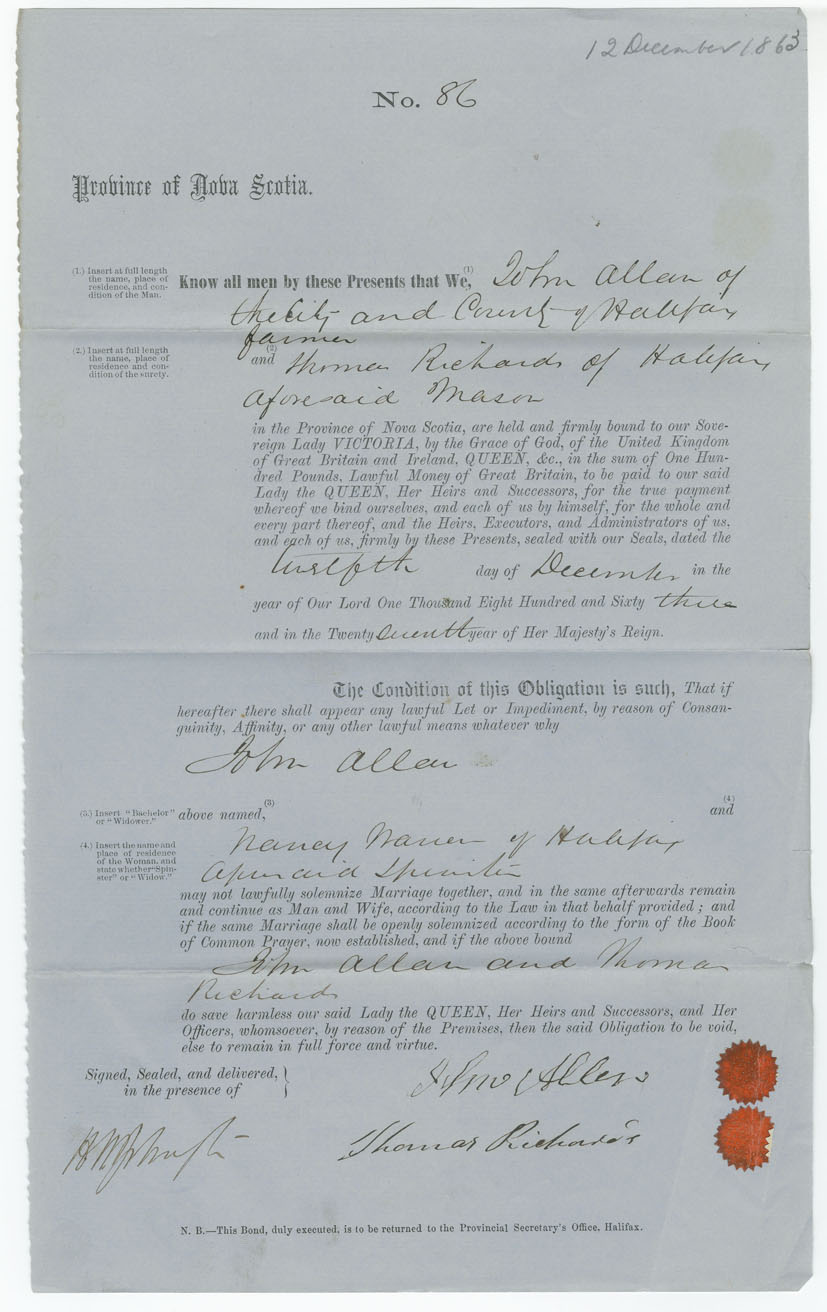 12 December 1863
No. 86
Province of Nova Scotia.
(1.) Insert at full length
the name, place of
residence, and con-
dition of the Man.
Know all men by these Presents that We, (1) John Allan of
the City and County of Halifax
farmer
(2.) Insert at full length
the name, place of
residence and con-
dition of the surety.
and (2) Thomas Richards of Halifax
aforesaid Mason
in the Province of Nova Scotia, are held and firmly bound to our Sove-
reign Lady VICTORIA, by the Grace of God, of the United Kingdom
of Great Britain and Ireland, QUEEN, &c., in the sum of One Hun-
dred Pounds, Lawful Money of Great Britain, to be paid to our said
Lady the QUEEN, Her Heirs and Successors, for the true payment
whereof we bind ourselves, and each of us by himself, for the whole and
every part thereof, and the Heirs, Executors, and Administrators of us,
and each of us, firmly by these Presents, sealed with our Seals, dated the
twelfth day of December in the
year of Our Lord One Thousand Eight Hundred and Sixty three
and in the Twenty Seventh year of Her Majesty's Reign.
The Condition of this Obligation is such, That if
hereafter there shall appear any lawful Let or Impediment, by reason of Consan-
guinity, Affinity, or any other lawful means whatever why
John Allan
(3.) Insert "Bachelor"
or "Widower."
above named, (3) and (4)
(4.) Insert the name and
place of residence
of the Woman, and
state whether "Spin-
ster" or "Widow."
Nancy Warren of Halifax
aforesaid Spinster
may not lawfully solemnize Marriage together, and in the same afterwards remain
and continue as Man and Wife, according to the Law in that behalf provided; and
if the same Marriage shall be openly solemnized according to the form of the Book
of Common Prayer, now established, and if the above bound
John Allan and Thomas
Richards
do save harmless our said Lady the QUEEN, Her Heirs and Successors, and Her
Officers, whomsoever, by reason of the Premises, then the said Obligation to be void,
else to remain in full force and virtue.
Signed, Sealed, and delivered,
in the presence of
Jno Allen
Thomas Richards
N. B.—This Bond, duly executed, is to be returned to the Provincial Secretary's Office, Halifax.